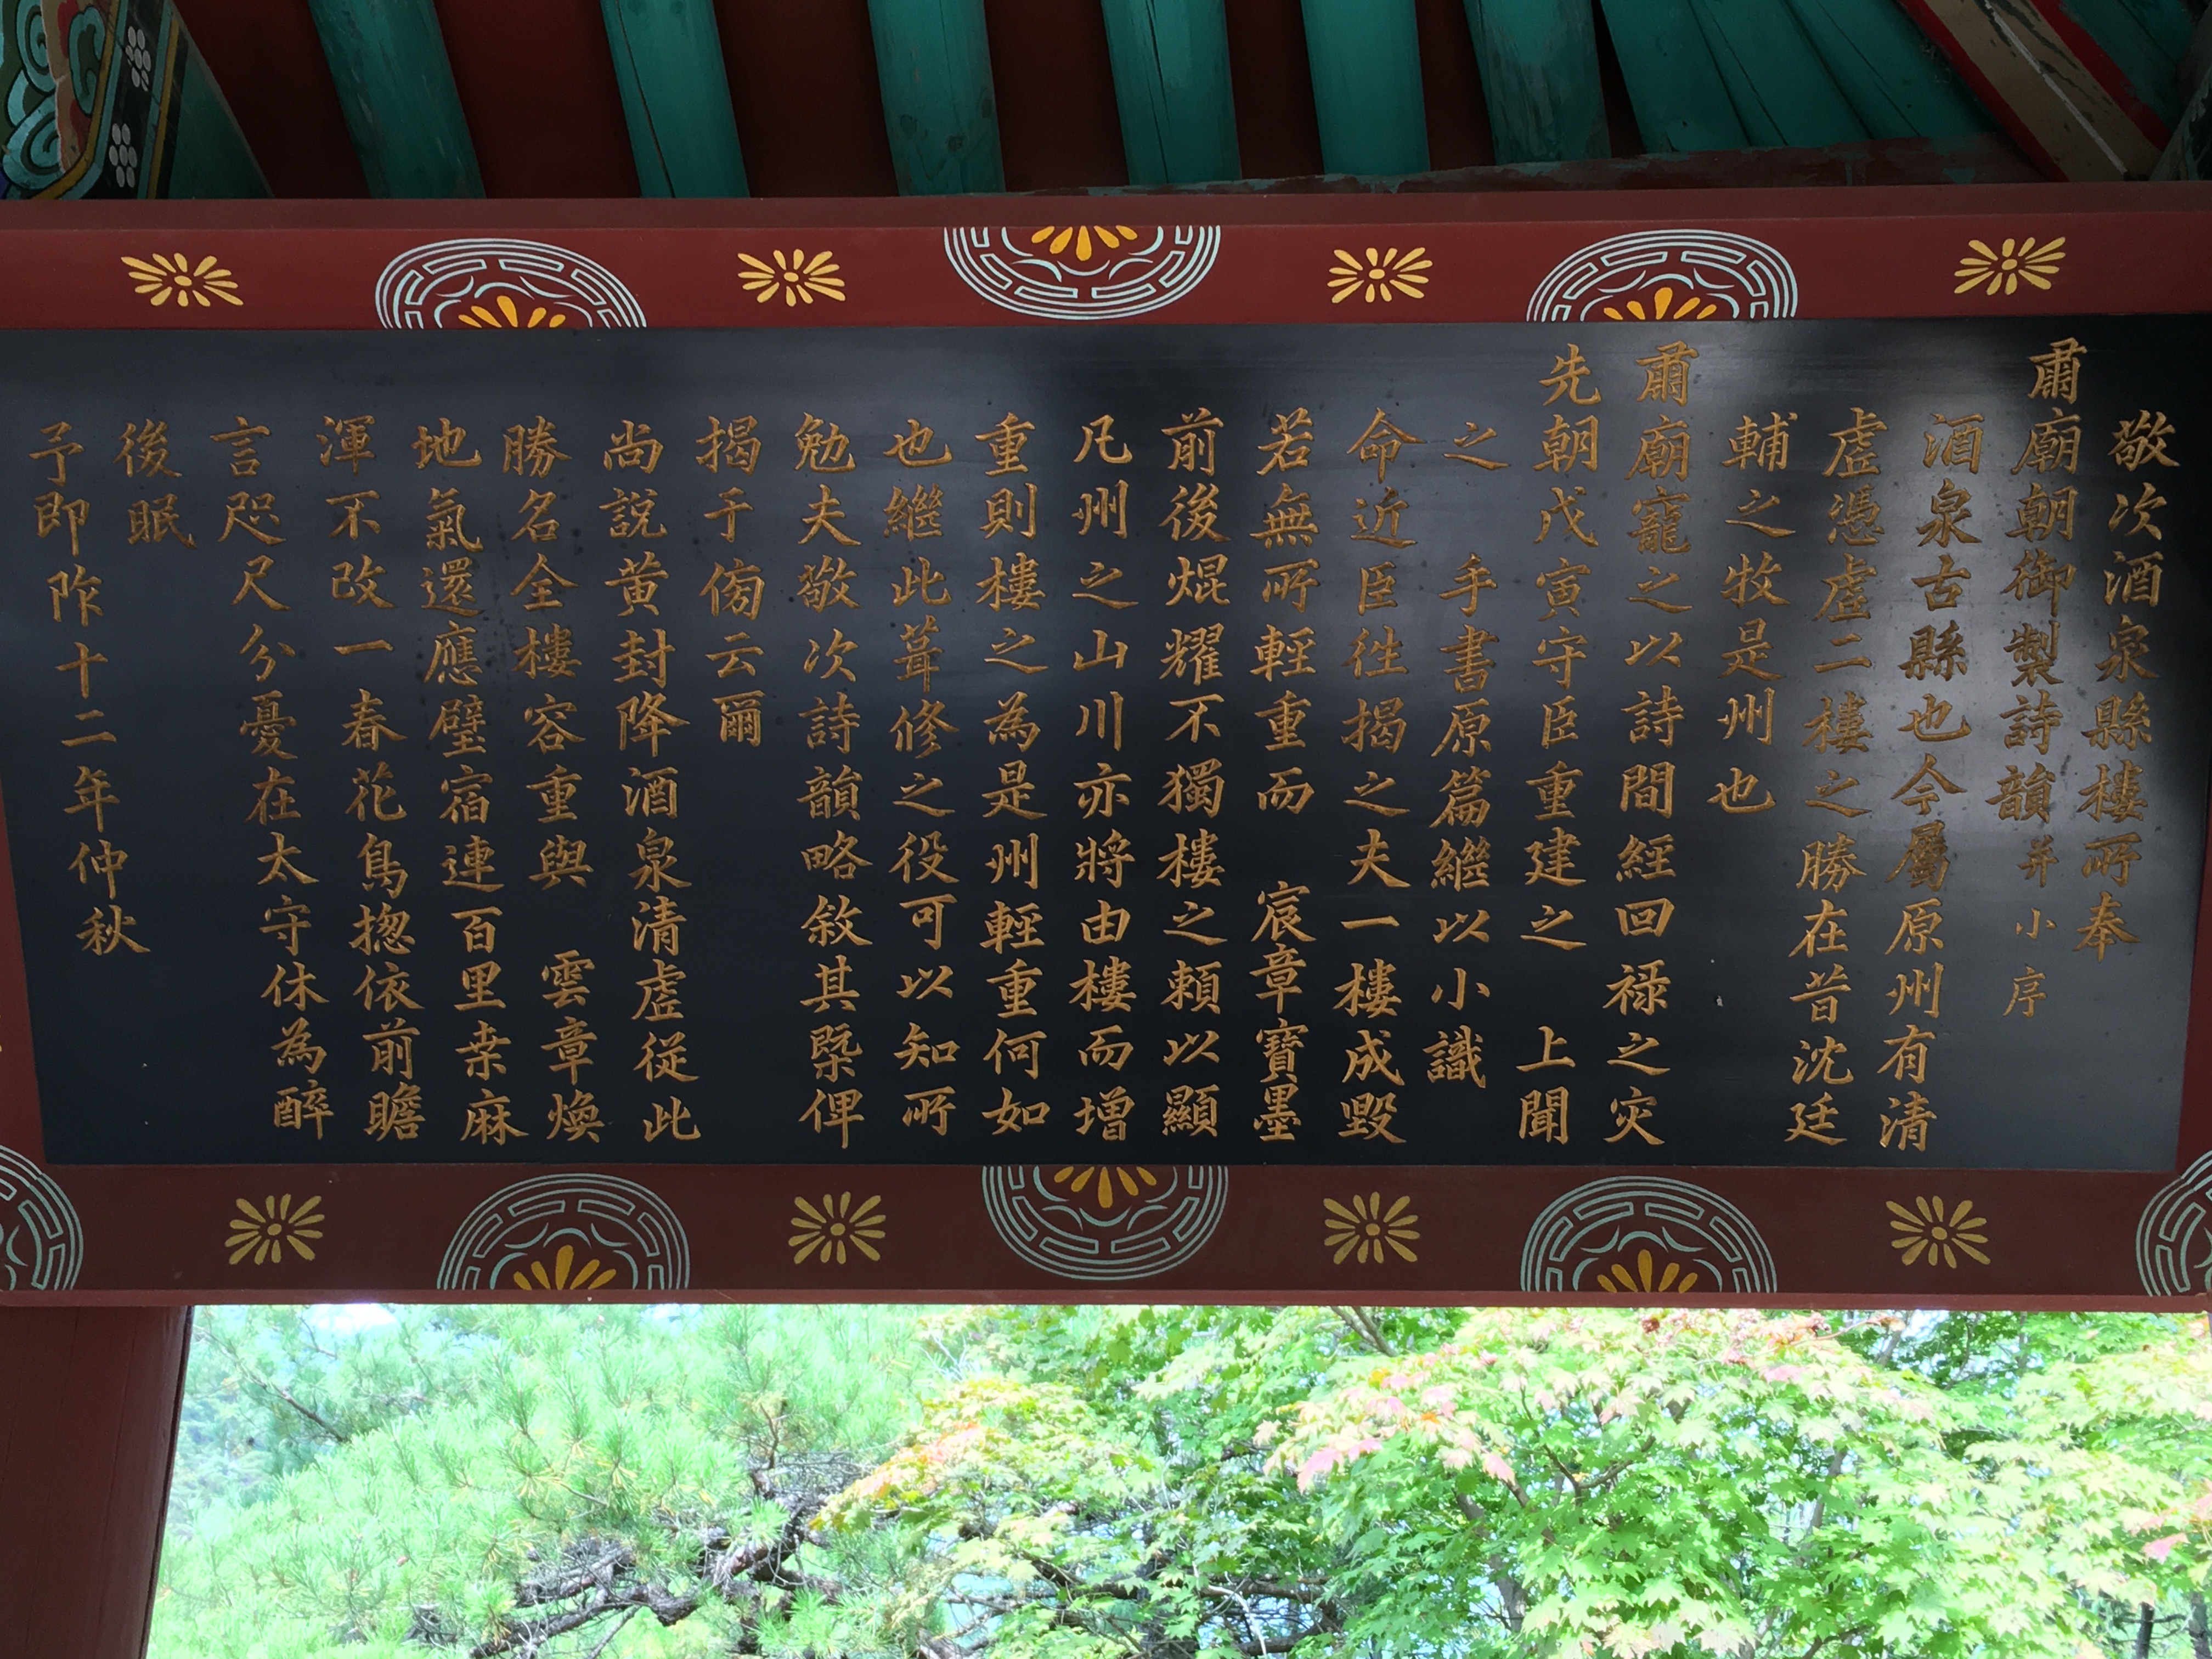 敬次酒泉縣樓所奉
肅廟朝御製詩韻并小序
酒泉古縣也今屬原州有清
虛憑虛二樓之勝在昔沈廷
輔之牧是州也
肅廟寵之以詩間經回祿之灾
先朝戊寅守臣重建之 上聞
之 手書原篇繼以小識
命近臣徃揭之夫一樓成毀
若無所輕重而 宸章寶墨
前後焜耀不獨樓之賴以顯
凡州之山川亦將由樓而增
重則樓之為是州輕重何如
也繼此葺修之役可以知所
勉夫敬次詩韻略敘其槩俾
揭于傍云爾
尚說黃封降酒泉清虛從此
勝名全樓容重與 雲章煥
地氣還應璧宿連百里桒麻
渾不改一春花鳥揔依前瞻
言咫尺分憂在太守休為醉
後眠
予即阼十二年仲秋